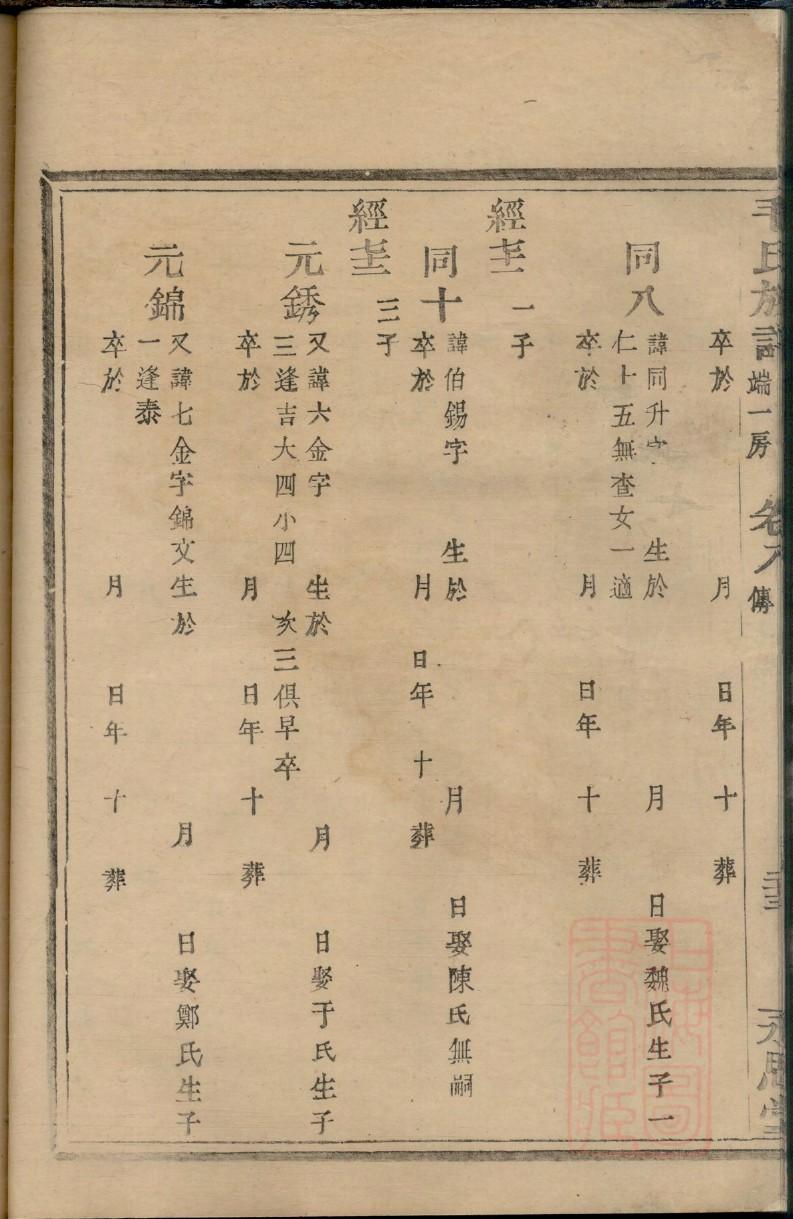 毛氏族譜 端一房 卷八 傳 永思堂
卒於 月 日年 十 葬
同八 諱同升字 生於 月 日娶魏氏生子一
仁十五無查女一適
卒於 月 日年 十 葬
經 一子
同十 諱伯錫字 生於 月 日娶陳氏無嗣
卒於 月 日年 十 葬
經 三子
元銹 又諱六金字 生於 月 日娶于氏生子
三逢吉大四小四 亥三俱早卒
卒於 月 日年 十 葬
元錦 又諱七金字錦文生於 月 日娶鄭氏生子
一逢泰
卒於 月 日年 十 葬